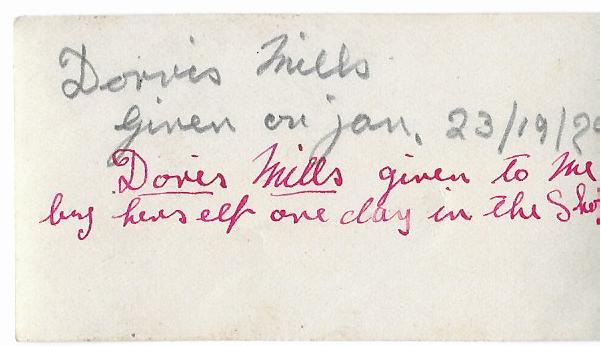 Dorris Mills
Given on Jan. 23/19/2
Doris Mills given to me
by herself one day in the